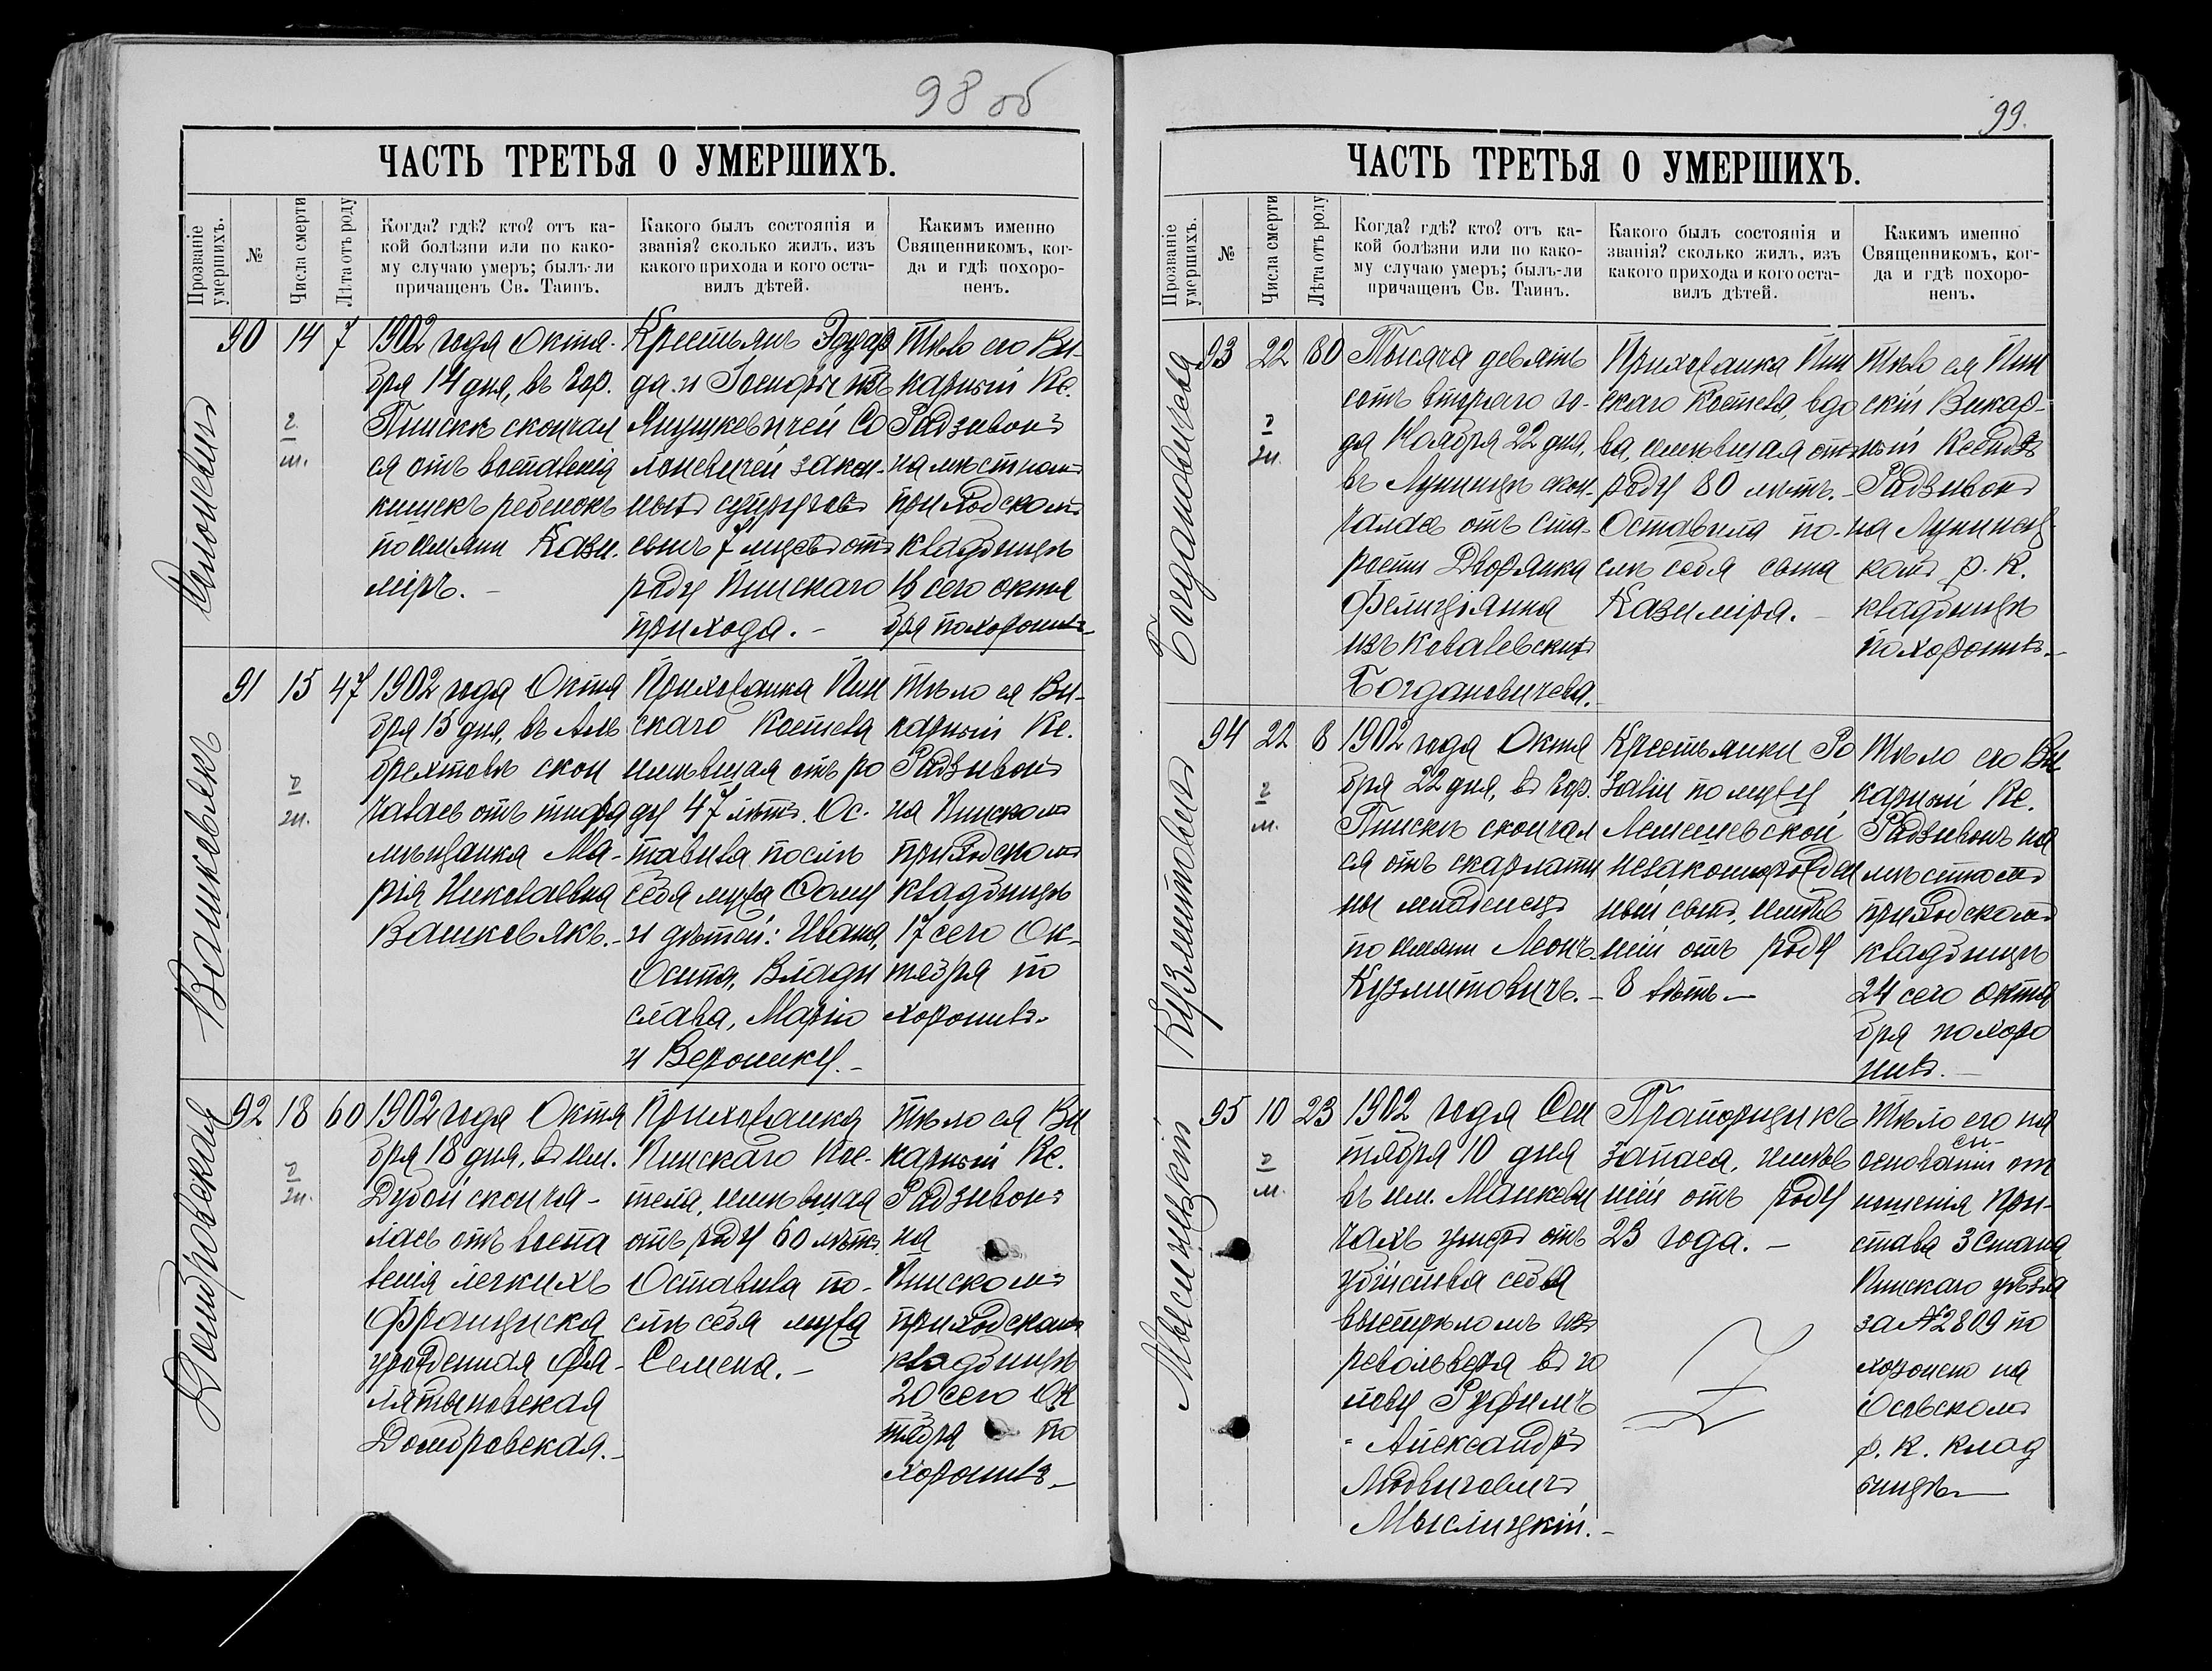 98 об
ЧАСТЬ ТРЕТЬЯ О УМЕРШИХЪ.
Прозваніе умершихъ.
№
Числа смерти
Лѣта отъ роду
Когда? гдѣ? кто? отъ ка-
кой болѣзни или по како-
му случаю умеръ; былъ-ли
причащенъ Св. Таинъ.
Какого былъ состоянія и
званія? сколько жилъ, изъ
какого прихода и кого оста-
вилъ дѣтей.
Какимъ именно
Священникомъ, ког-
да и гдѣ похоро-
ненъ.
90
14
7
1902 года Октя-
бря 14 дня, въ гор.
Пинскѣ скончал
ся отъ воспаленія
кишекъ ребенокъ
по имени Кази-
міръ. –
Крестьянъ Эдуар
да и
Янушкевичей Со
лоневичей закон-
ныхъ супруговъ
сынъ 7 мцевъ отъ
роду Пинскаго
прихода. –
Тѣло его Ви-
карный Кс.
Радзивонъ
на мѣстномъ
приходскомъ
кладбищѣ
16 сего октя
бря похоронилъ
Вашкевьякъ
91
15
47
1902 года Октя
бря 15 дня, въ Аль
брехтовѣ скон
чалась отъ тифа
мѣщанка Ма-
рія Николаевна
Вашкевьякъ. –
Прихожанка Пин
скаго Костела
имѣвшая отъ ро
ду 47 лѣтъ. Ос-
тавила послѣ
себя мужа Фому
и дѣтей: Ивана,
Осипа, Влади
слава, Марію
и Веронику. –
Тѣло ея Ви-
карный Кс.
Радзивонъ
на Пинскомъ
приходскомъ
кладбищѣ
17 сего Ок-
тября по
хоронилъ.
Домбровская
92
18
60
1902 года Октя
бря 18 дня, въ им.
Дубой сконча-
лась отъ воспа
ленія легкихъ
Францишка
урожденная Фа-
лятыновская
Домбровская. –
Прихожанка
Пинскаго Кос-
тела, имѣвшая
отъ роду 60 лѣтъ.
Оставила по-
слѣ себя мужа
Семена. –
Тѣло ея Ви
карный Кс.
Радзивонъ
на
Пинскомъ
приходскомъ
кладбищѣ
20 сего Ок
тября по
хоронилъ –
99.
ЧАСТЬ ТРЕТЬЯ О УМЕРШИХЪ.
Прозваніе умершихъ.
№
Числа смерти
Лѣта отъ роду
Когда? гдѣ? кто? отъ ка-
кой болѣзни или по како-
му случаю умеръ; былъ-ли
причащенъ Св. Таинъ.
Какого былъ состоянія и
званія? сколько жилъ, изъ
какого прихода и кого оста-
вилъ дѣтей.
Какимъ именно
Священникомъ, ког-
да и гдѣ похоро-
ненъ.
Богдановичева
93
22
80
Тысяча девять
сотъ второго го-
да Ноября 22 дня,
въ Лунинцѣ скон-
чалась отъ ста-
рости Дворянка
Фелиціянна
изъ Ковалевскихъ
Богдановичева.
Прихожанка Пин
скаго Костела, вдо
ва, имѣвшая отъ
роду 80 лѣтъ. –
Оставила по-
слѣ себя сына
Казиміра. –
Тѣло ея Пин
скій Викар-
ный Ксендзъ
Радзивонъ
на Лунинец
комъ р. К.
кладбищѣ
похоронилъ. –
Кузмитовичъ
94
22
8
1902 года Октя
бря 22 дня, въ гор.
Пинскѣ скончал
ся отъ скарлати
ны младенецъ
по имени Леонъ
Кузмитовичъ. –
Крестьянки Ро
заліи по мужу
Лемешевской
незаконнорожден
ный сынъ, имѣв
шій отъ роду
8 лѣтъ. –
Тѣло его Ви
карный Кс.
Радзивонъ на
мѣстномъ
приходскомъ
кладбищѣ
24 сего октя
бря похоро
нилъ. –
Мыслицкій
95
10
23
1902 года Сен
тября 10 дня
въ им. Манкеви
чахъ умеръ отъ
убійства себя
выстрѣломъ изъ
револьвера въ го
лову Руфимъ
- Александръ
Людвиговичъ
Мыслицкій. –
Прапорщикъ
запаса, имѣв
шій отъ роду
23 года. –
Тѣло его на
основаніи от
ношенія При-
става 3 Стана
Пинскаго уѣзда
за № 2809 по
хоронено на
Осовскомъ
р. К. клад
бищѣ –